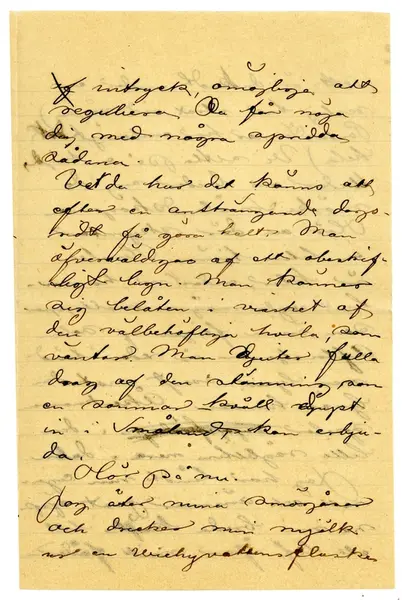 af intryck, omöjliga att
regulera. Du får nöja
dig med några spridda
sådana
Vet du hur det känns att
efter en ansträngande dags-
rodt få göra halt. Man
öfverväldigas af ett obeskrif-
ligt lugn. Man känner
sig belåten i vinket af
den välbehöfliga hvila, som
väntar. Man njuter fulla
drag af den stämning, som
en sommar kväll djupt
in i Småland kan erbju-
da.
Hör på nu.
Jag äter mina smörgåsar
och dricker min mjölk
ur en Vichyvattensflaska